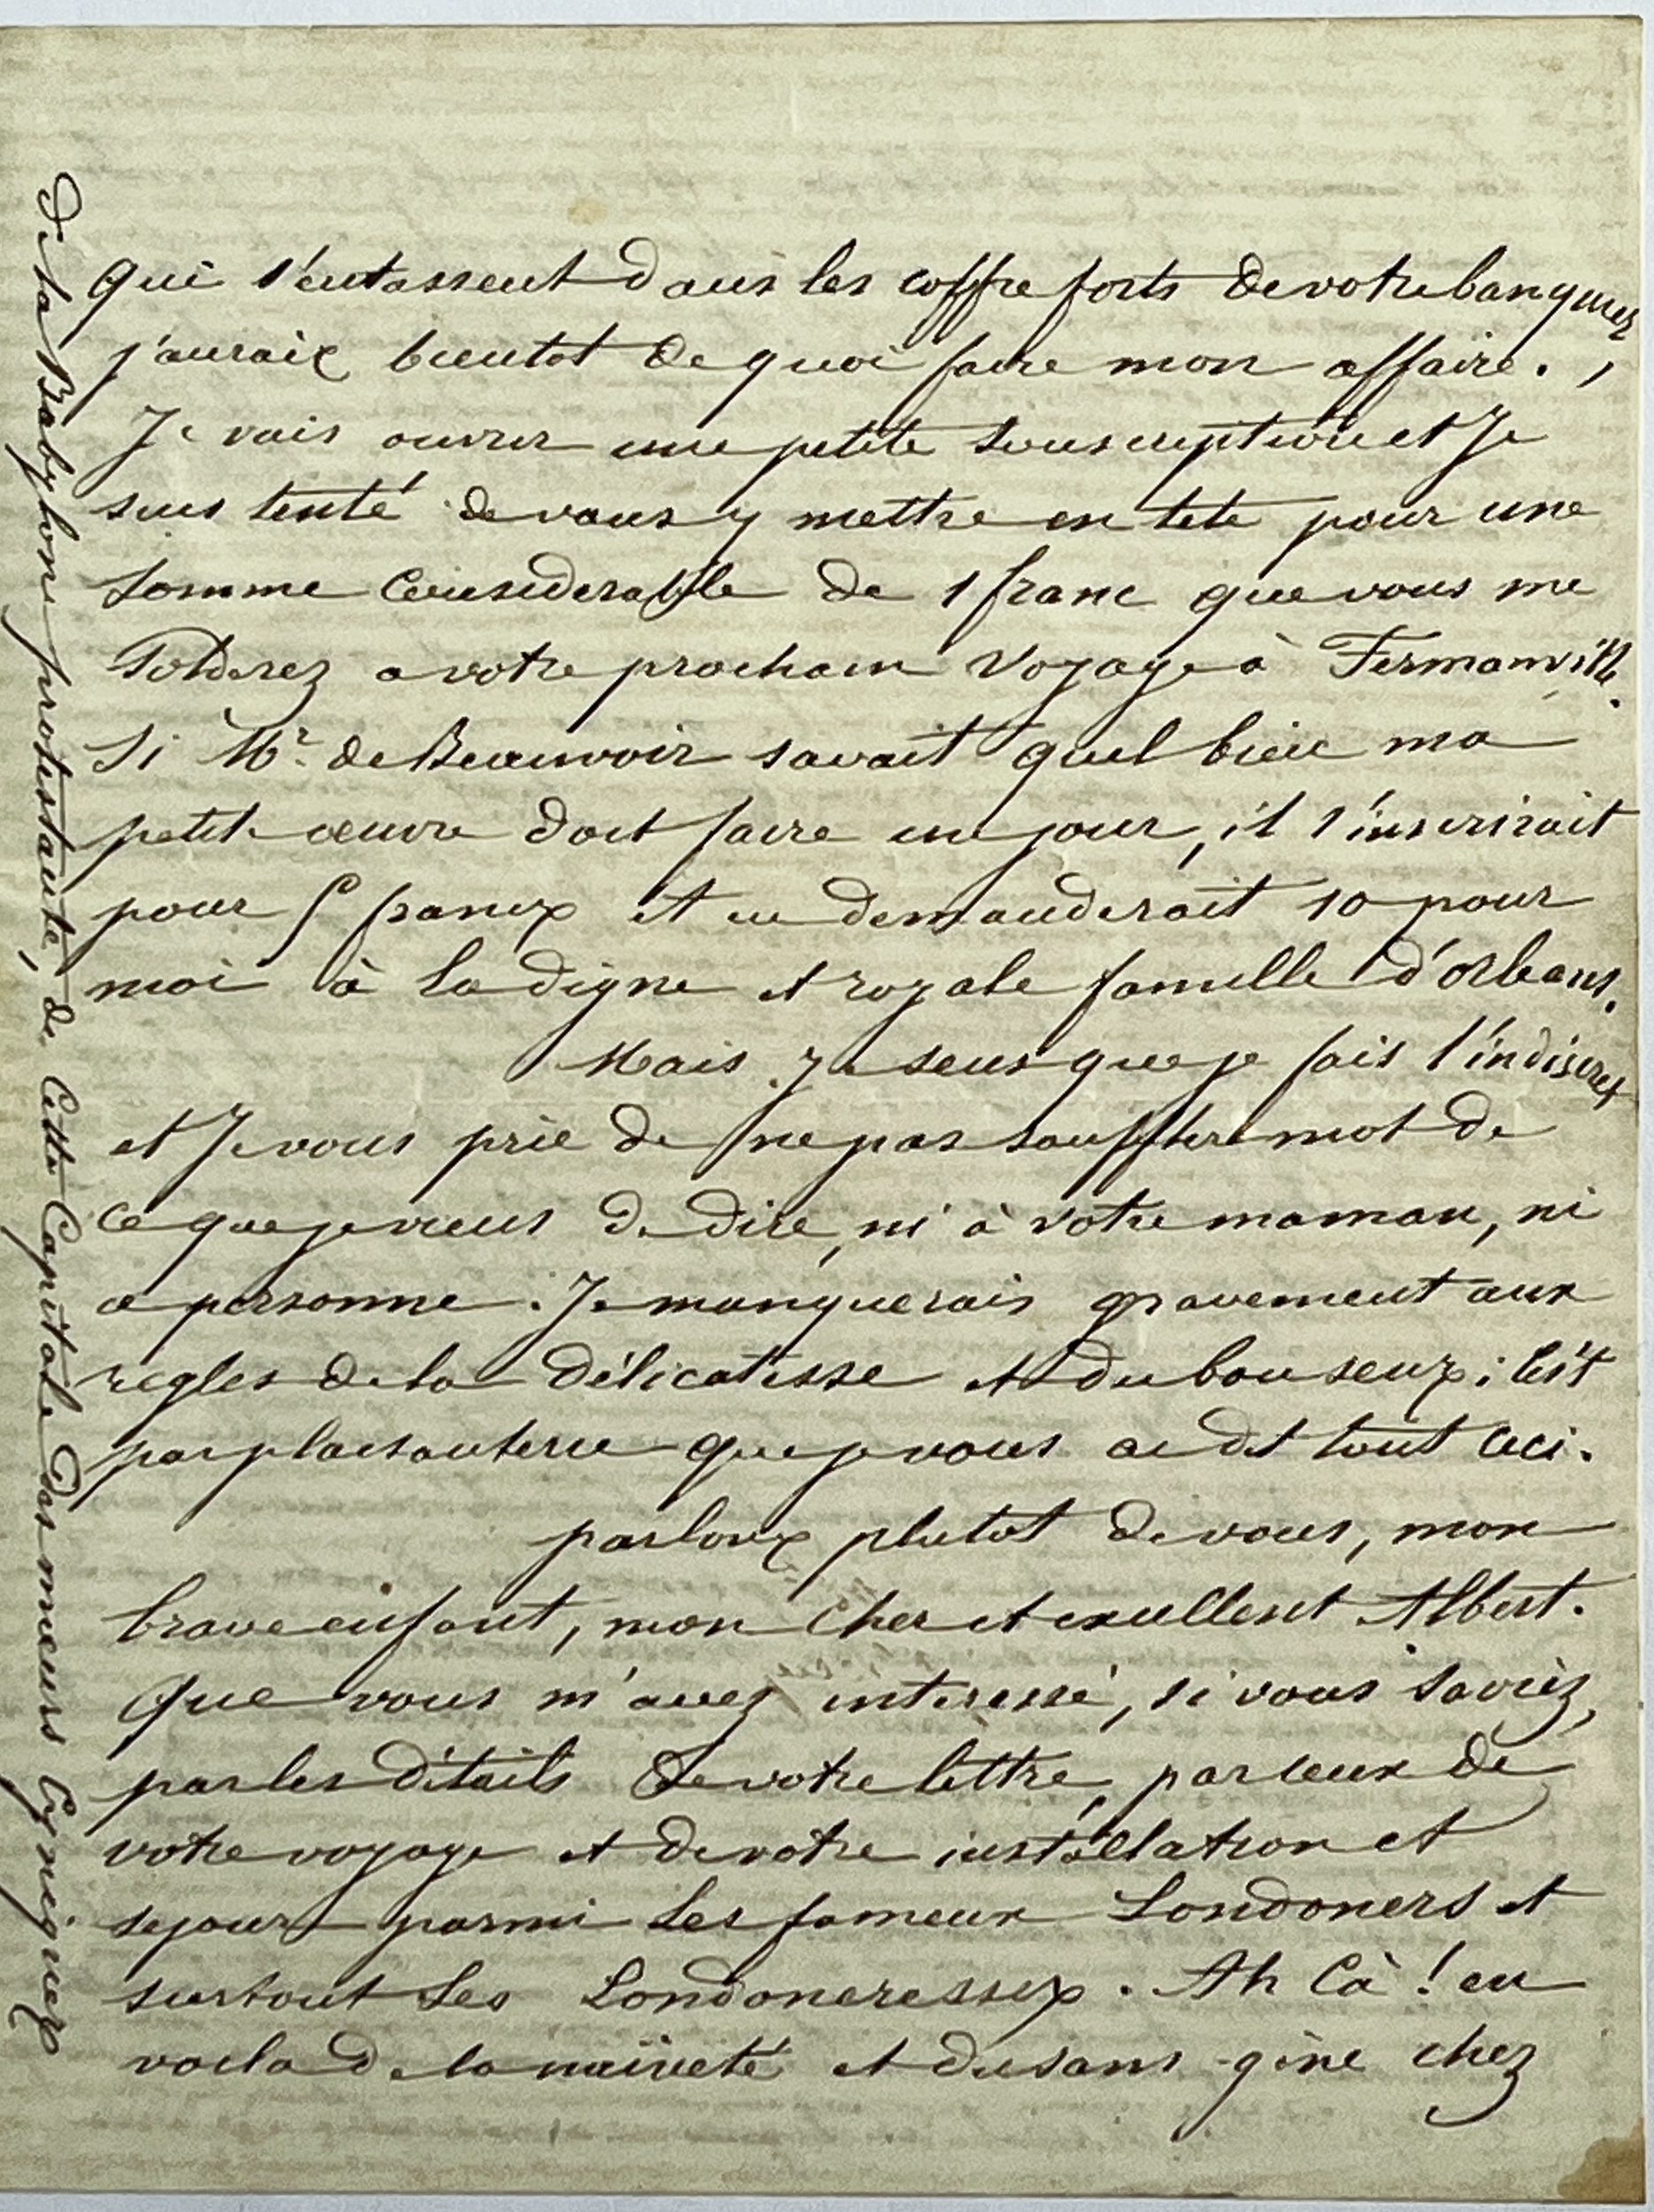 qui s'entassent dans les coffre forts de votre banquier,
j'aurais bientot de quoi faire mon affaire.
Je vais ouvrir une petite souscription et Je
suis tenté de vous y mettre en tete pour une
somme considerable de 1 franc que vous me
solderez a votre prochain voyage à Fermanville.
Si Mr. de Beauvoir savait quel bien ma
petite oeuvre doit faire un jour, il s'inscrirait
pour 5 francs et en demanderait 10 pour
moi à la digne et royale famille d'orleans.
Mais je sens que je fais l'indiscret
et Je vous prie de ne pas souffler mot de
ce que je viens de dire, ni à votre maman, ni
a personne. Je manquerais gravement aux
regles de la délicatesse et du bon sens; c'est
par plaisanterie que je vous ai dit tout ceci.
parlons plutot de vous, mon
brave enfant, mon cher et excellent Albert.
Que vous m'avez interessé, si vous saviez,
par les détails de votre lettre, par ceux de
votre voyage et de votre installation et
sejour parmi les fameux Londoners et
surtout les Londoneresses. Ah Cà! en
voila de la naïveté et du sans-gêne chez
de la Babylone protestante, de cette Capitale des moeurs Cyniques